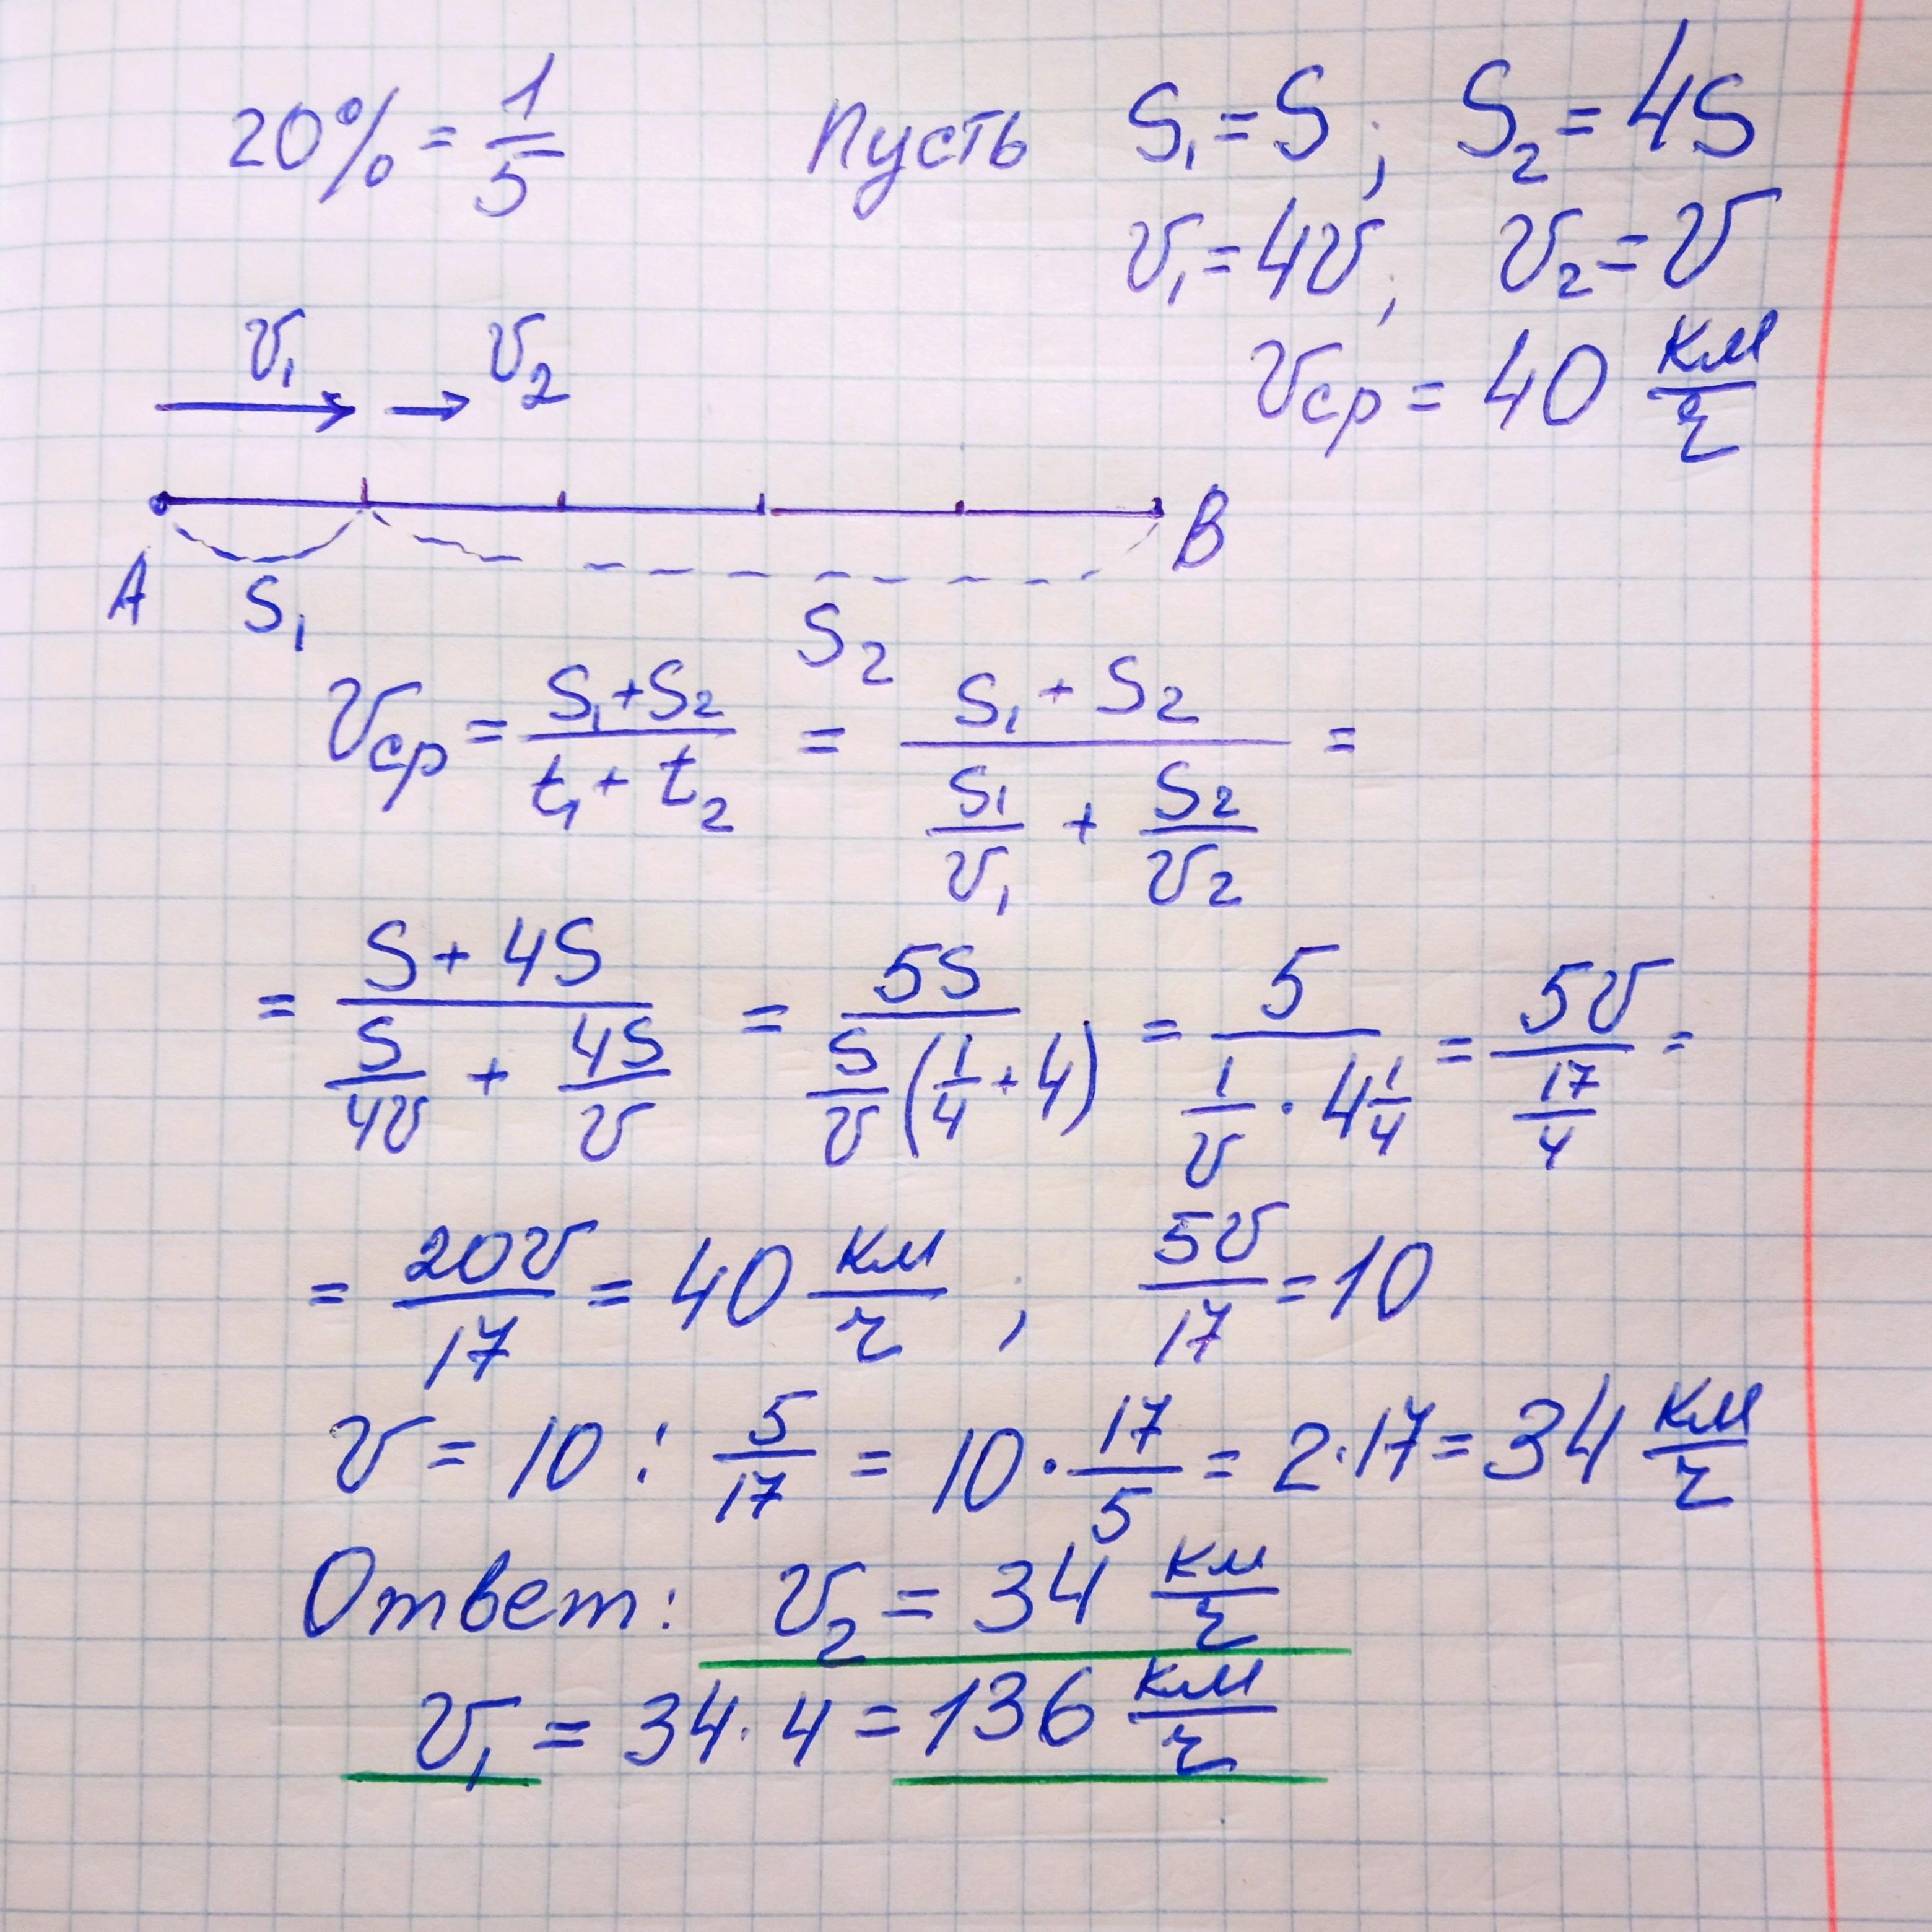 20% = 1/5 Пусть S₁ = S ; S₂ = 4S
v₁ = 4v ; v₂ = v
v₁ v₂ vср = 40 км/ч
A S₁ S₂ B
vср = (S₁ + S₂)/(t₁ + t₂) = (S₁ + S₂)/(S₁/v₁ + S₂/v₂) =
= (S + 4S)/(S/4v + 4S/v) = 5S/(S/v (1/4 + 4)) = 5/(1/v · 4 1/4) = 5v/(17/4) =
= 20v/17 = 40 км/ч ; 5v/17 = 10
v = 10 : 5/17 = 10 · 17/5 = 2·17 = 34 км/ч
Ответ: v₂ = 34 км/ч
v₁ = 34 · 4 = 136 км/ч